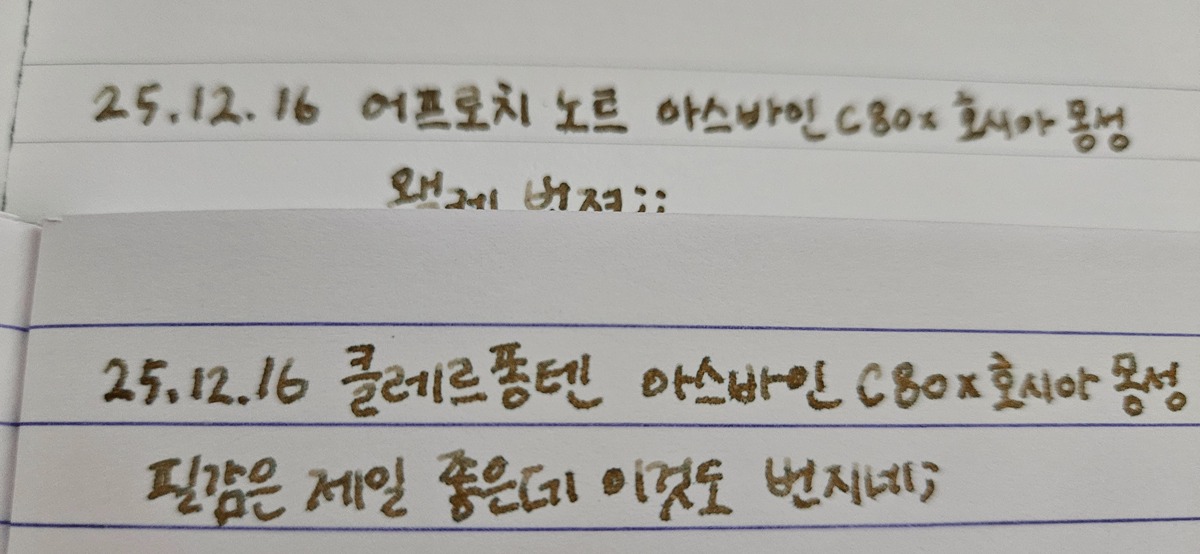 25.12.16 어프로치 노트 아스바인 C80x 호시아 몽성
왤케 번져;;
25.12.16 클레르퐁텐 아스바인 C80x 호시아 몽성
필감은 제일 좋은데 이것도 번지네;